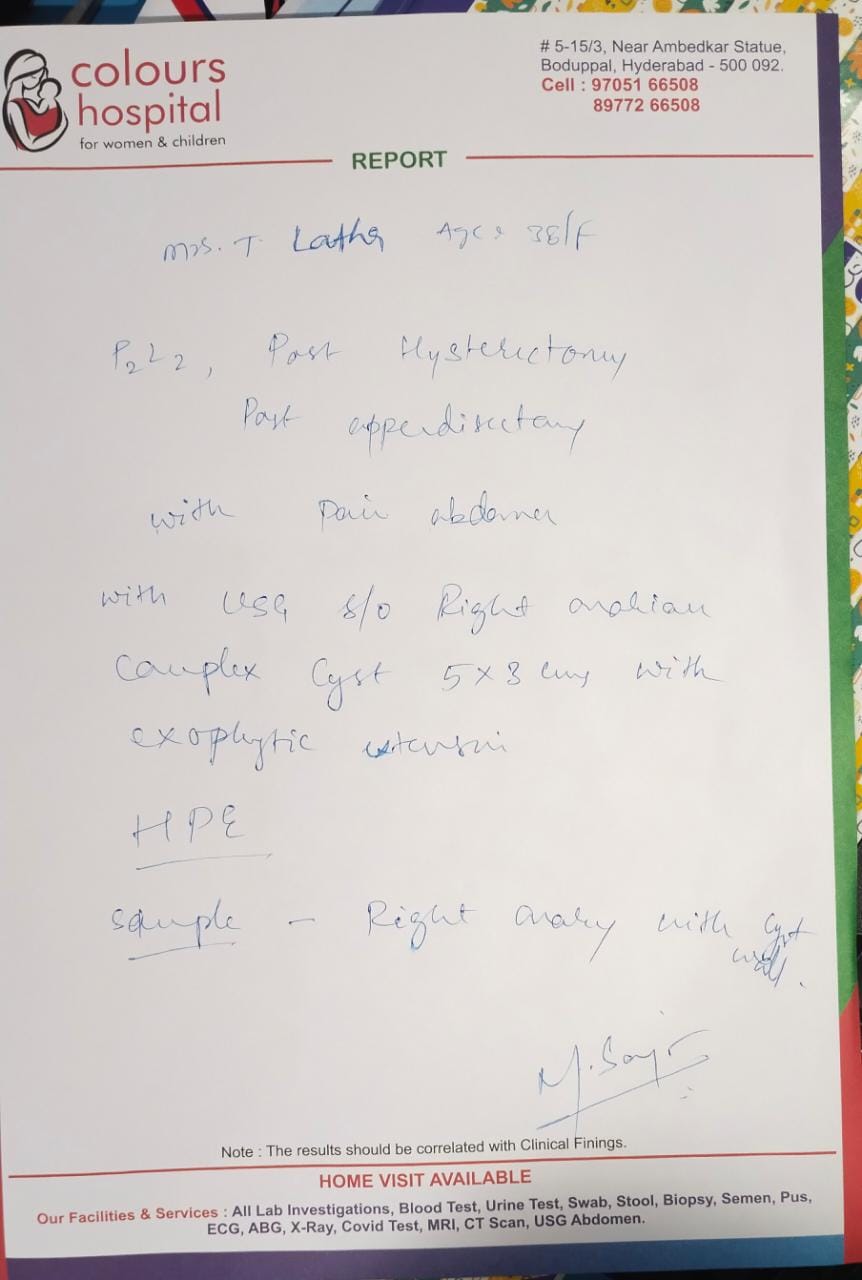 colours
hospital
for women & children
# 5-15/3, Near Ambedkar Statue,
Boduppal, Hyderabad - 500 092.
Cell : 97051 66508
89772 66508
REPORT
Mrs. T. Latha Age: 38/F
P2L2, Post Hysterectomy
Post appendisectomy
with Pain abdomen
with USG s/o Right ovarian
Complex Cyst 5x3 cms with
exophytic extension
HPE
Sample - Right ovary with Cyst
wall.
Note : The results should be correlated with Clinical Finings.
HOME VISIT AVAILABLE
Our Facilities & Services : All Lab Investigations, Blood Test, Urine Test, Swab, Stool, Biopsy, Semen, Pus,
ECG, ABG, X-Ray, Covid Test, MRI, CT Scan, USG Abdomen.